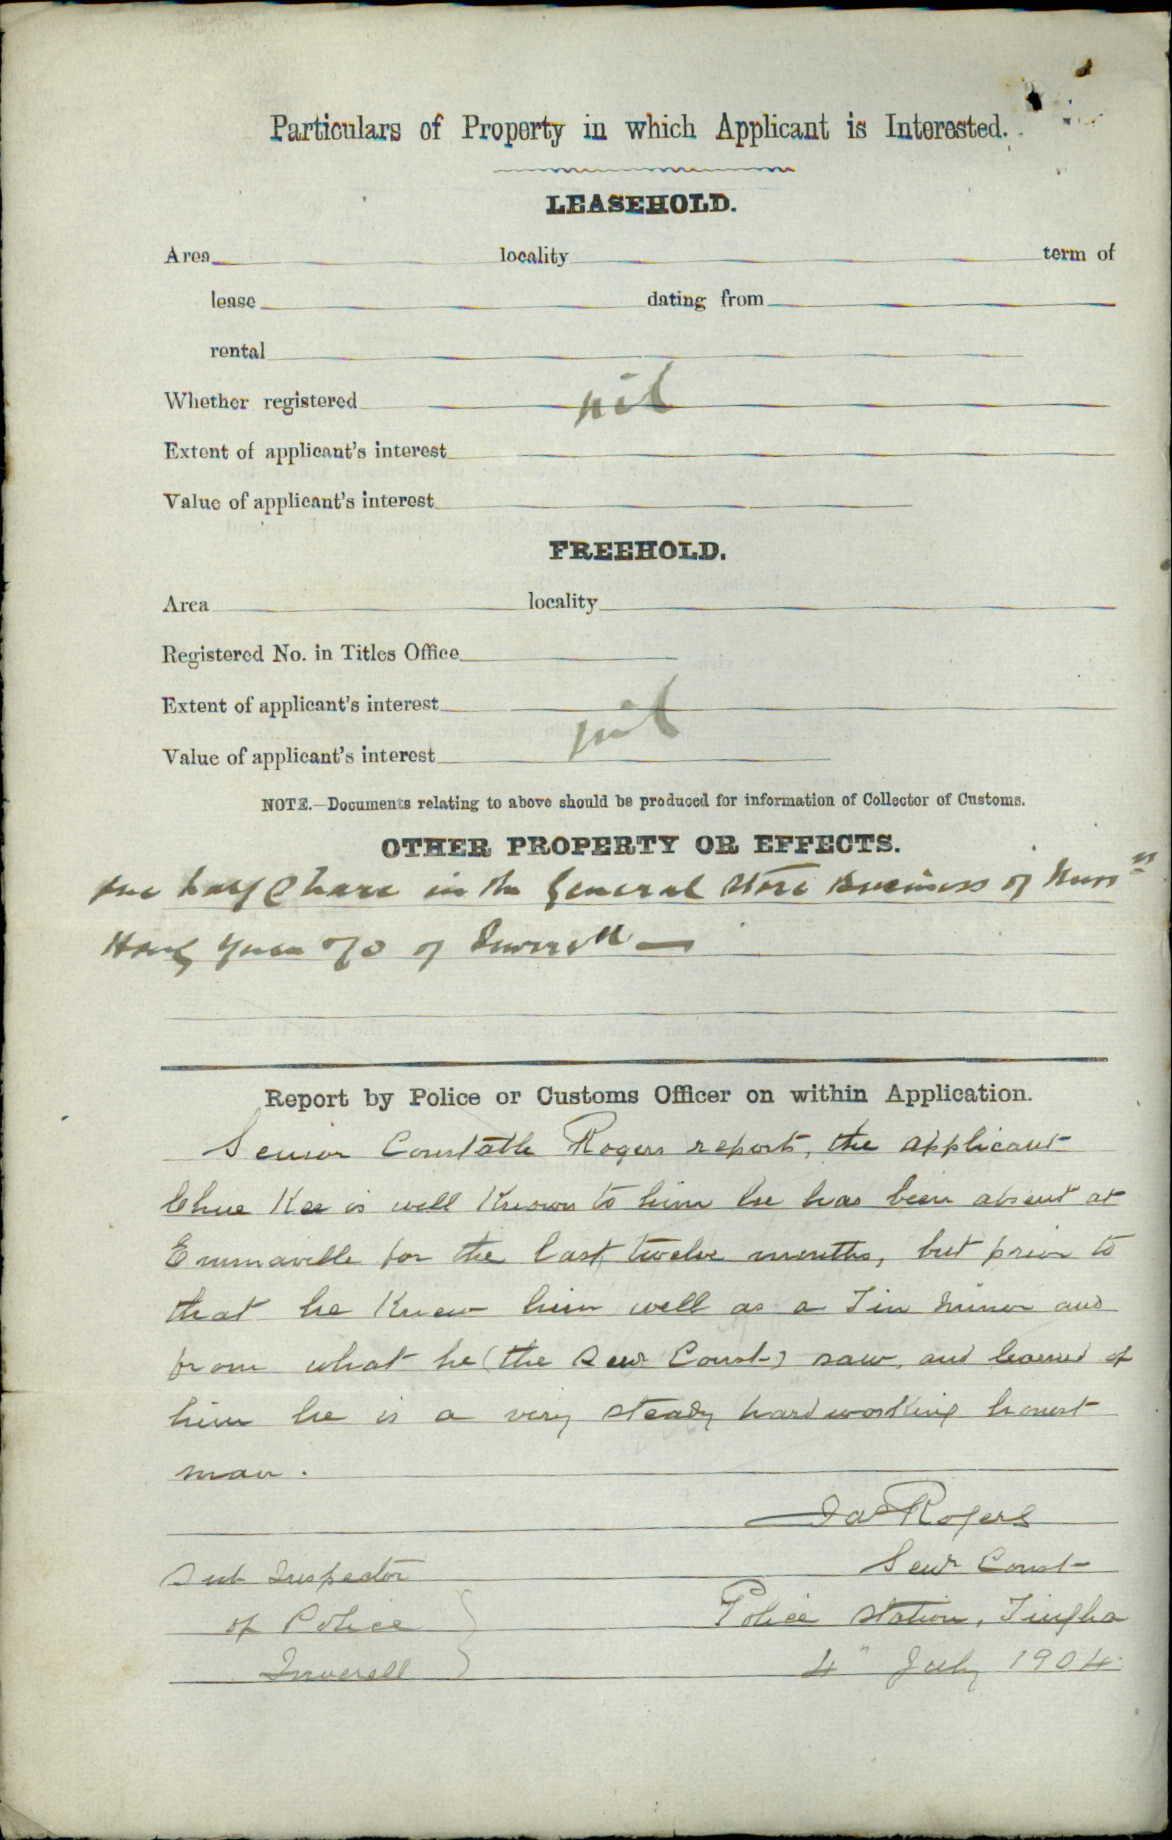 Particulars of Property in which Applicant is Interested.
LEASEHOLD.
Area locality term of
lease dating from
rental
Whether registered nil
Extent of applicant's interest
Value of applicant's interest
FREEHOLD.
Area locality
Registered No. in Titles Office
Extent of applicant's interest
nil
Value of applicant's interest
NOTE.—Documents relating to above should be produced for information of Collector of Customs.
OTHER PROPERTY OR EFFECTS.
One half Share in the General Store Business of Messrs
Hong Yuen & Co of Inverell —
Report by Police or Customs Officer on within Application.
Senior Constable Rogers reports, the applicant
Chue Kee is well Known to him he has been absent at
Emmaville for the last twelve months, but prior to
that he Knew him well as a Tin miner and
from what he (the Senr Const-) saw, and learned of
him he is a very steady hardworking honest
man.
Jas Rogers
Senr Const-
Sub Inspector
of Police
Police Station, Tingha
Inverell
4" July 1904